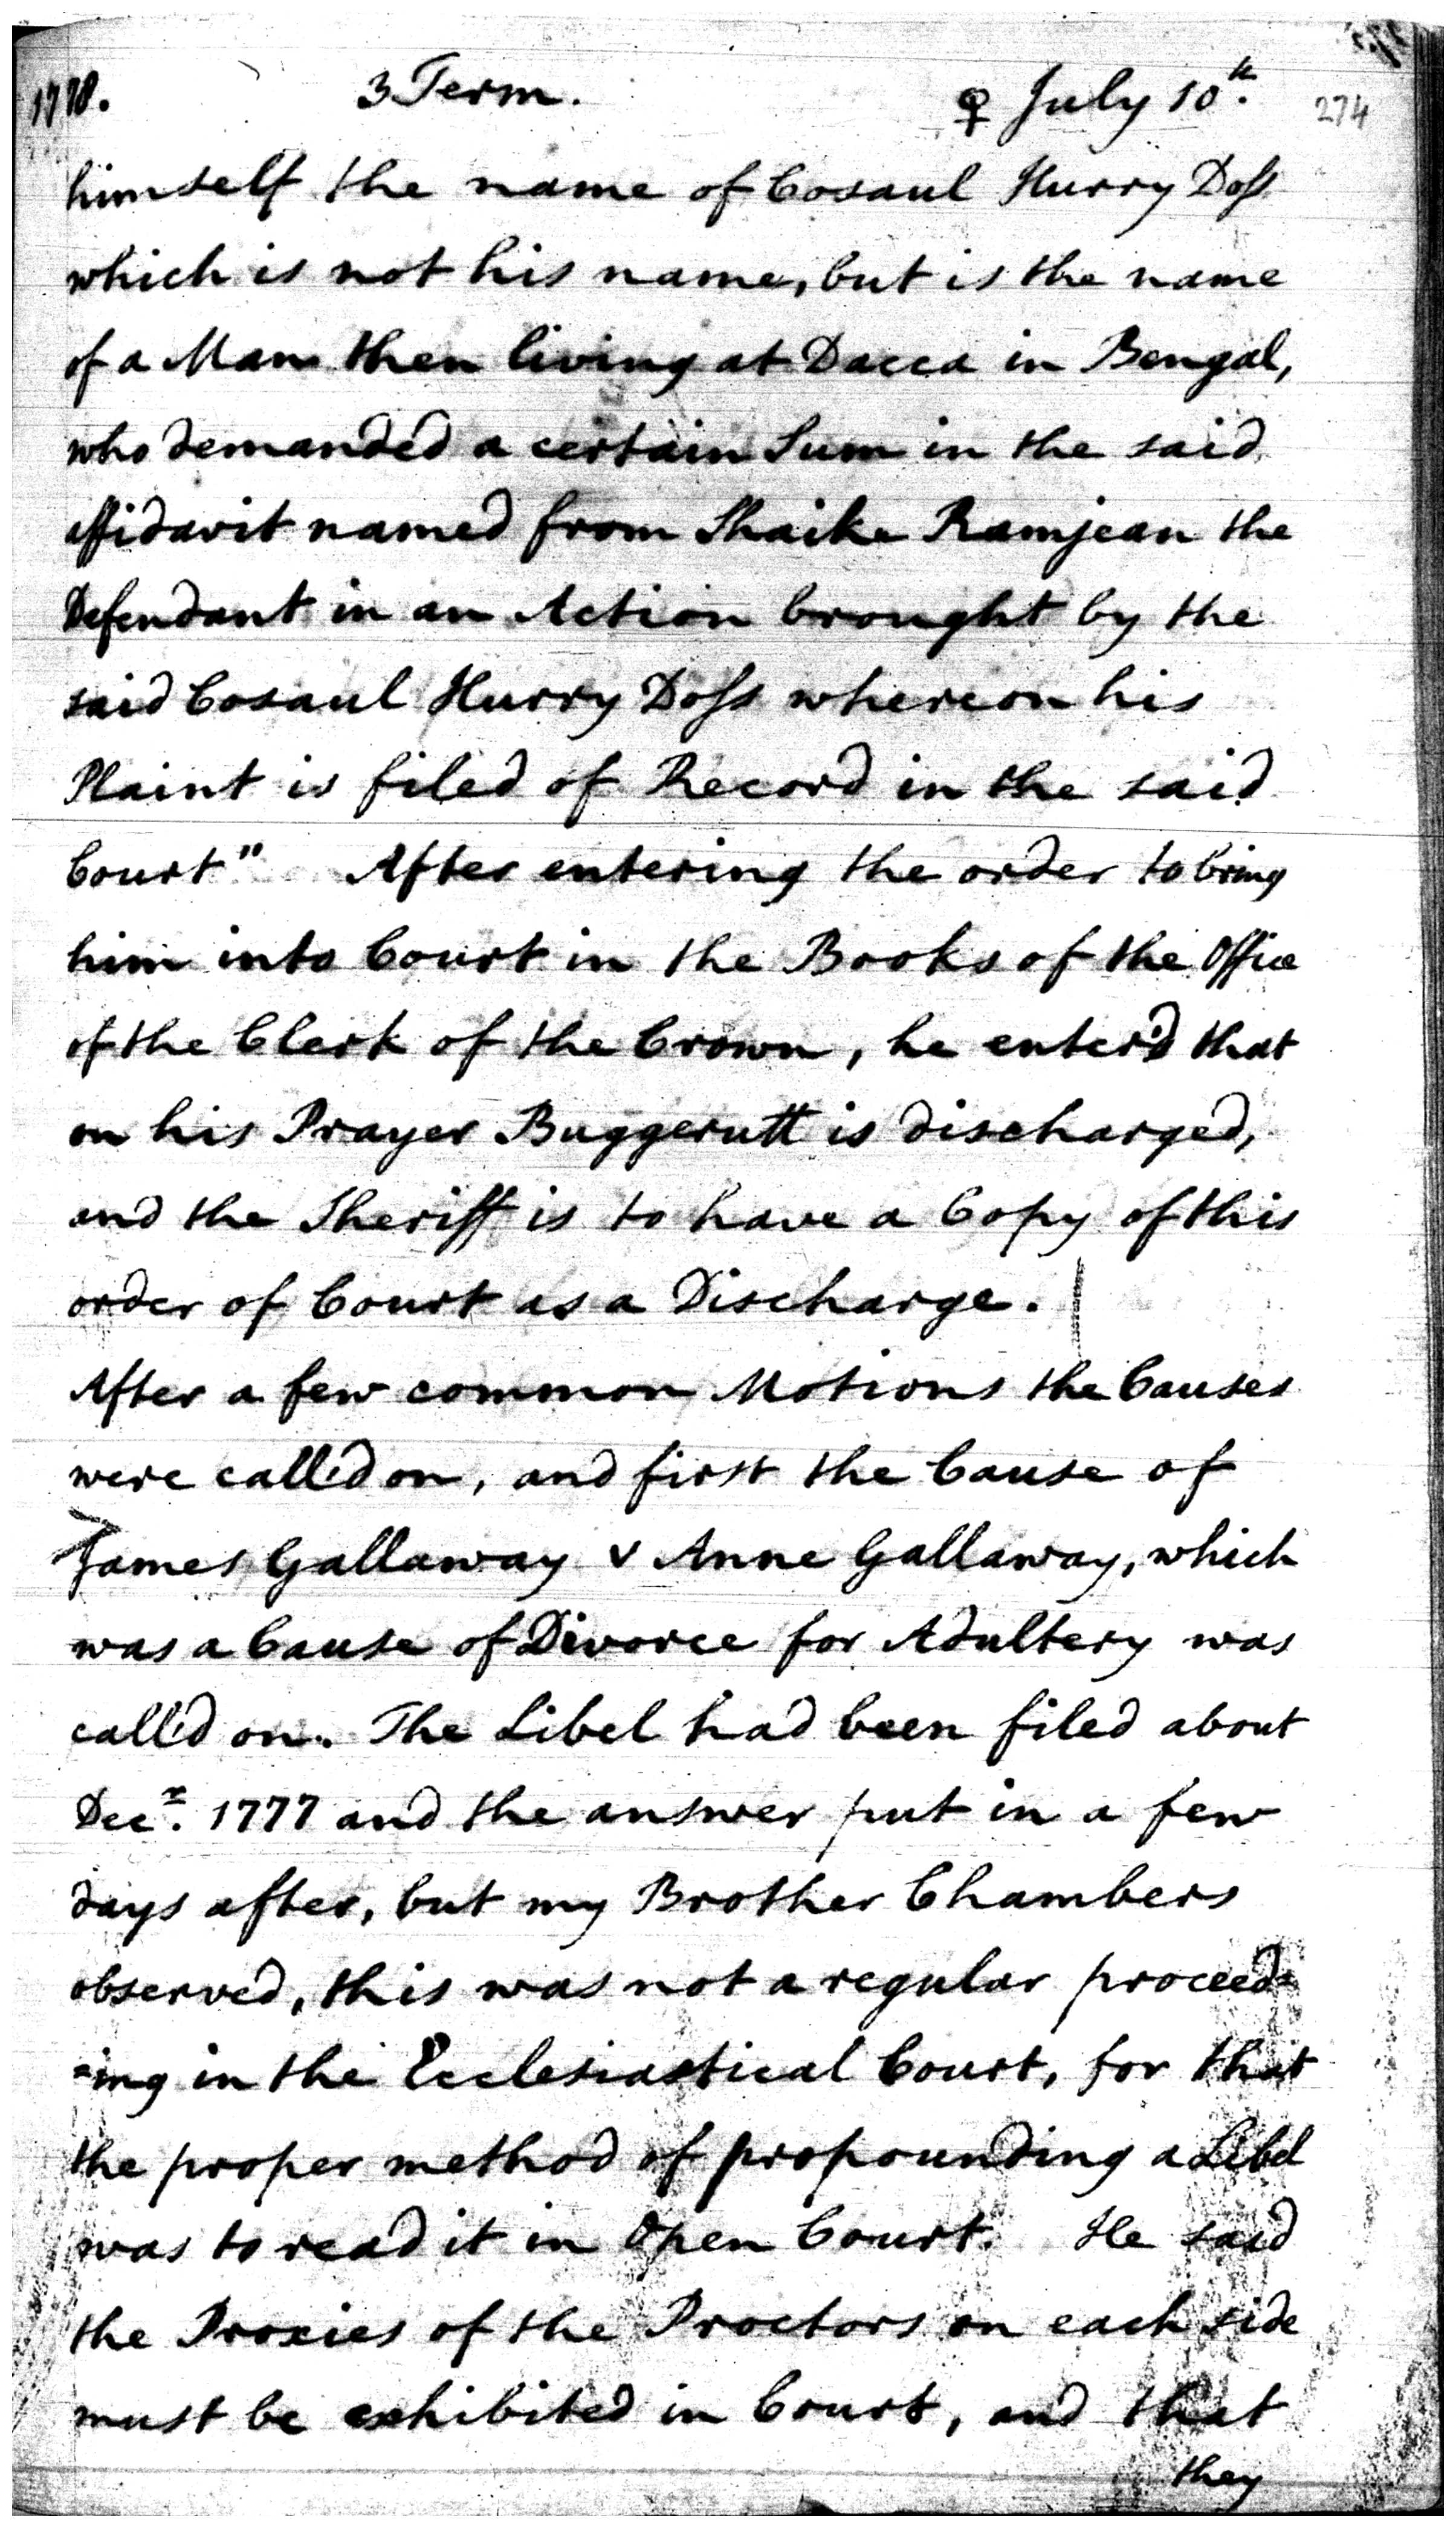 1778. 3 Term. ♀ July 10th. 274
himself the name of Cosaul Hurry Doss
which is not his name, but is the name
of a Man then living at Dacca in Bengal,
who demanded a certain Sum in the said
affidavit named from Shaike Ramjean the
Defendant in an Action brought by the
said Cosaul Hurry Doss whereon his
Plaint is filed of Record in the said
Court" After entering the order to bring
him into Court in the Books of the Office
of the Clerk of the Crown, he enter'd that
on his Prayer Buggerutt is discharged,
and the Sheriff is to have a Copy of this
order of Court as a Discharge.
After a few common Motions the Causes
were call'd on, and first the Cause of
James Gallaway v Anne Gallaway, which
was a Cause of Divorce for Adultery was
call'd on. The Libel had been filed about
Decr. 1777 and the answer put in a few
days after, but my Brother Chambers
observed, this was not a regular proceed=
=ing in the Ecclesiastical Court, for that
the proper method of propounding a Libel
was to read it in Open Court. He said
the Proxies of the Proctors on each side
must be exhibited in Court, and that
they